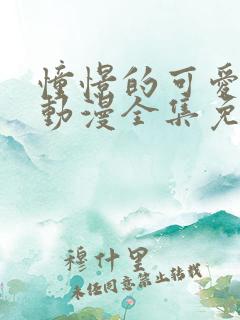 憧憬的可愛
動漫全集免
穆什里
未经同意禁止转载